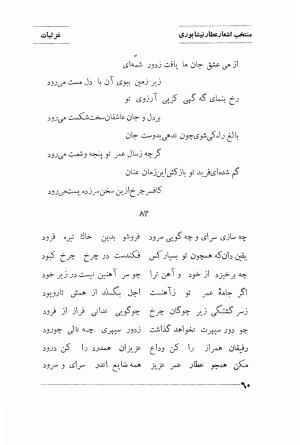 منتخب اشعار عطار نیشابوری
غزلیات
از می عشق جان ما یافت ز دور شمه‌ای
زیر زمین ببوی آن با دل مست می‌رود
رخ بنمای گه گهی کز پی آرزوی تو
بر دل و جان عاشقان سخت شکست می‌رود
بالغ راه کی شوی چون ندهی بدوست جان
گرچه ز سال عمر تو پنجه و شصت می‌رود
گم شده‌ای فرید تو بازکش این زمان عنان
کافسر چرخ ازین سخن سرزده پست می‌رود
۸۳
چه سازی سرای و چه گویی سرود فروشو بدین خاك تیره فرود
یقین دان که همچون تو بسیار کس فکندست در چرخ چرخ کبود
چه برخیزد از خود و آهن ترا چو سر آهنین نیست در زیر خود
اگر جامۀ عمر تو ز آهنست اجل بگسلد از همش تاروپود
ز سرگشتگی زیر چوگان چرخ چوگویی ندانی فراز از فرود
چو دور سپهرت نخواهد گذاشت ز دور سپهری چه نالی چورود
رفیقان همراز را کن وداع عزیزان همدرد را کن درود
مکن همچو عطار عمر عزیز همه ضایع اندر سرای و سرود
۶۰